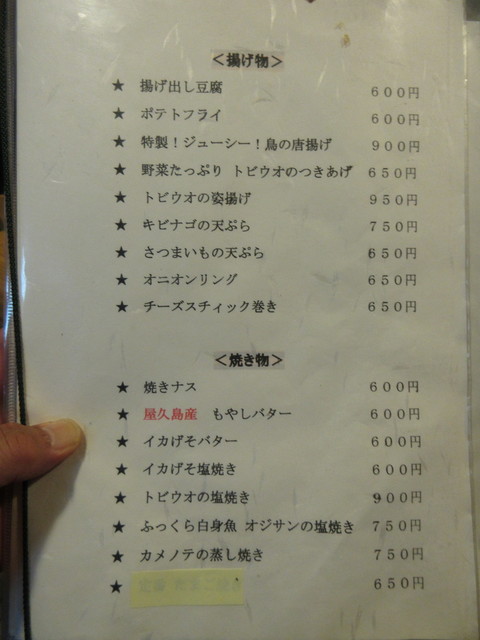 ＜揚げ物＞
★ 揚げ出し豆腐 600円
★ ポテトフライ 600円
★ 特製！ジューシー！鳥の唐揚げ 900円
★ 野菜たっぷり トビウオのつきあげ 650円
★ トビウオの姿揚げ 950円
★ キビナゴの天ぷら 750円
★ さつまいもの天ぷら 650円
★ オニオンリング 650円
★ チーズスティック巻き 650円
＜焼き物＞
★ 焼きナス 600円
★ 屋久島産 もやしバター 600円
★ イカげそバター 600円
★ イカげそ塩焼き 600円
★ トビウオの塩焼き 900円
★ ふっくら白身魚 オジサンの塩焼き 750円
★ カメノテの蒸し焼き 750円
★ 650円